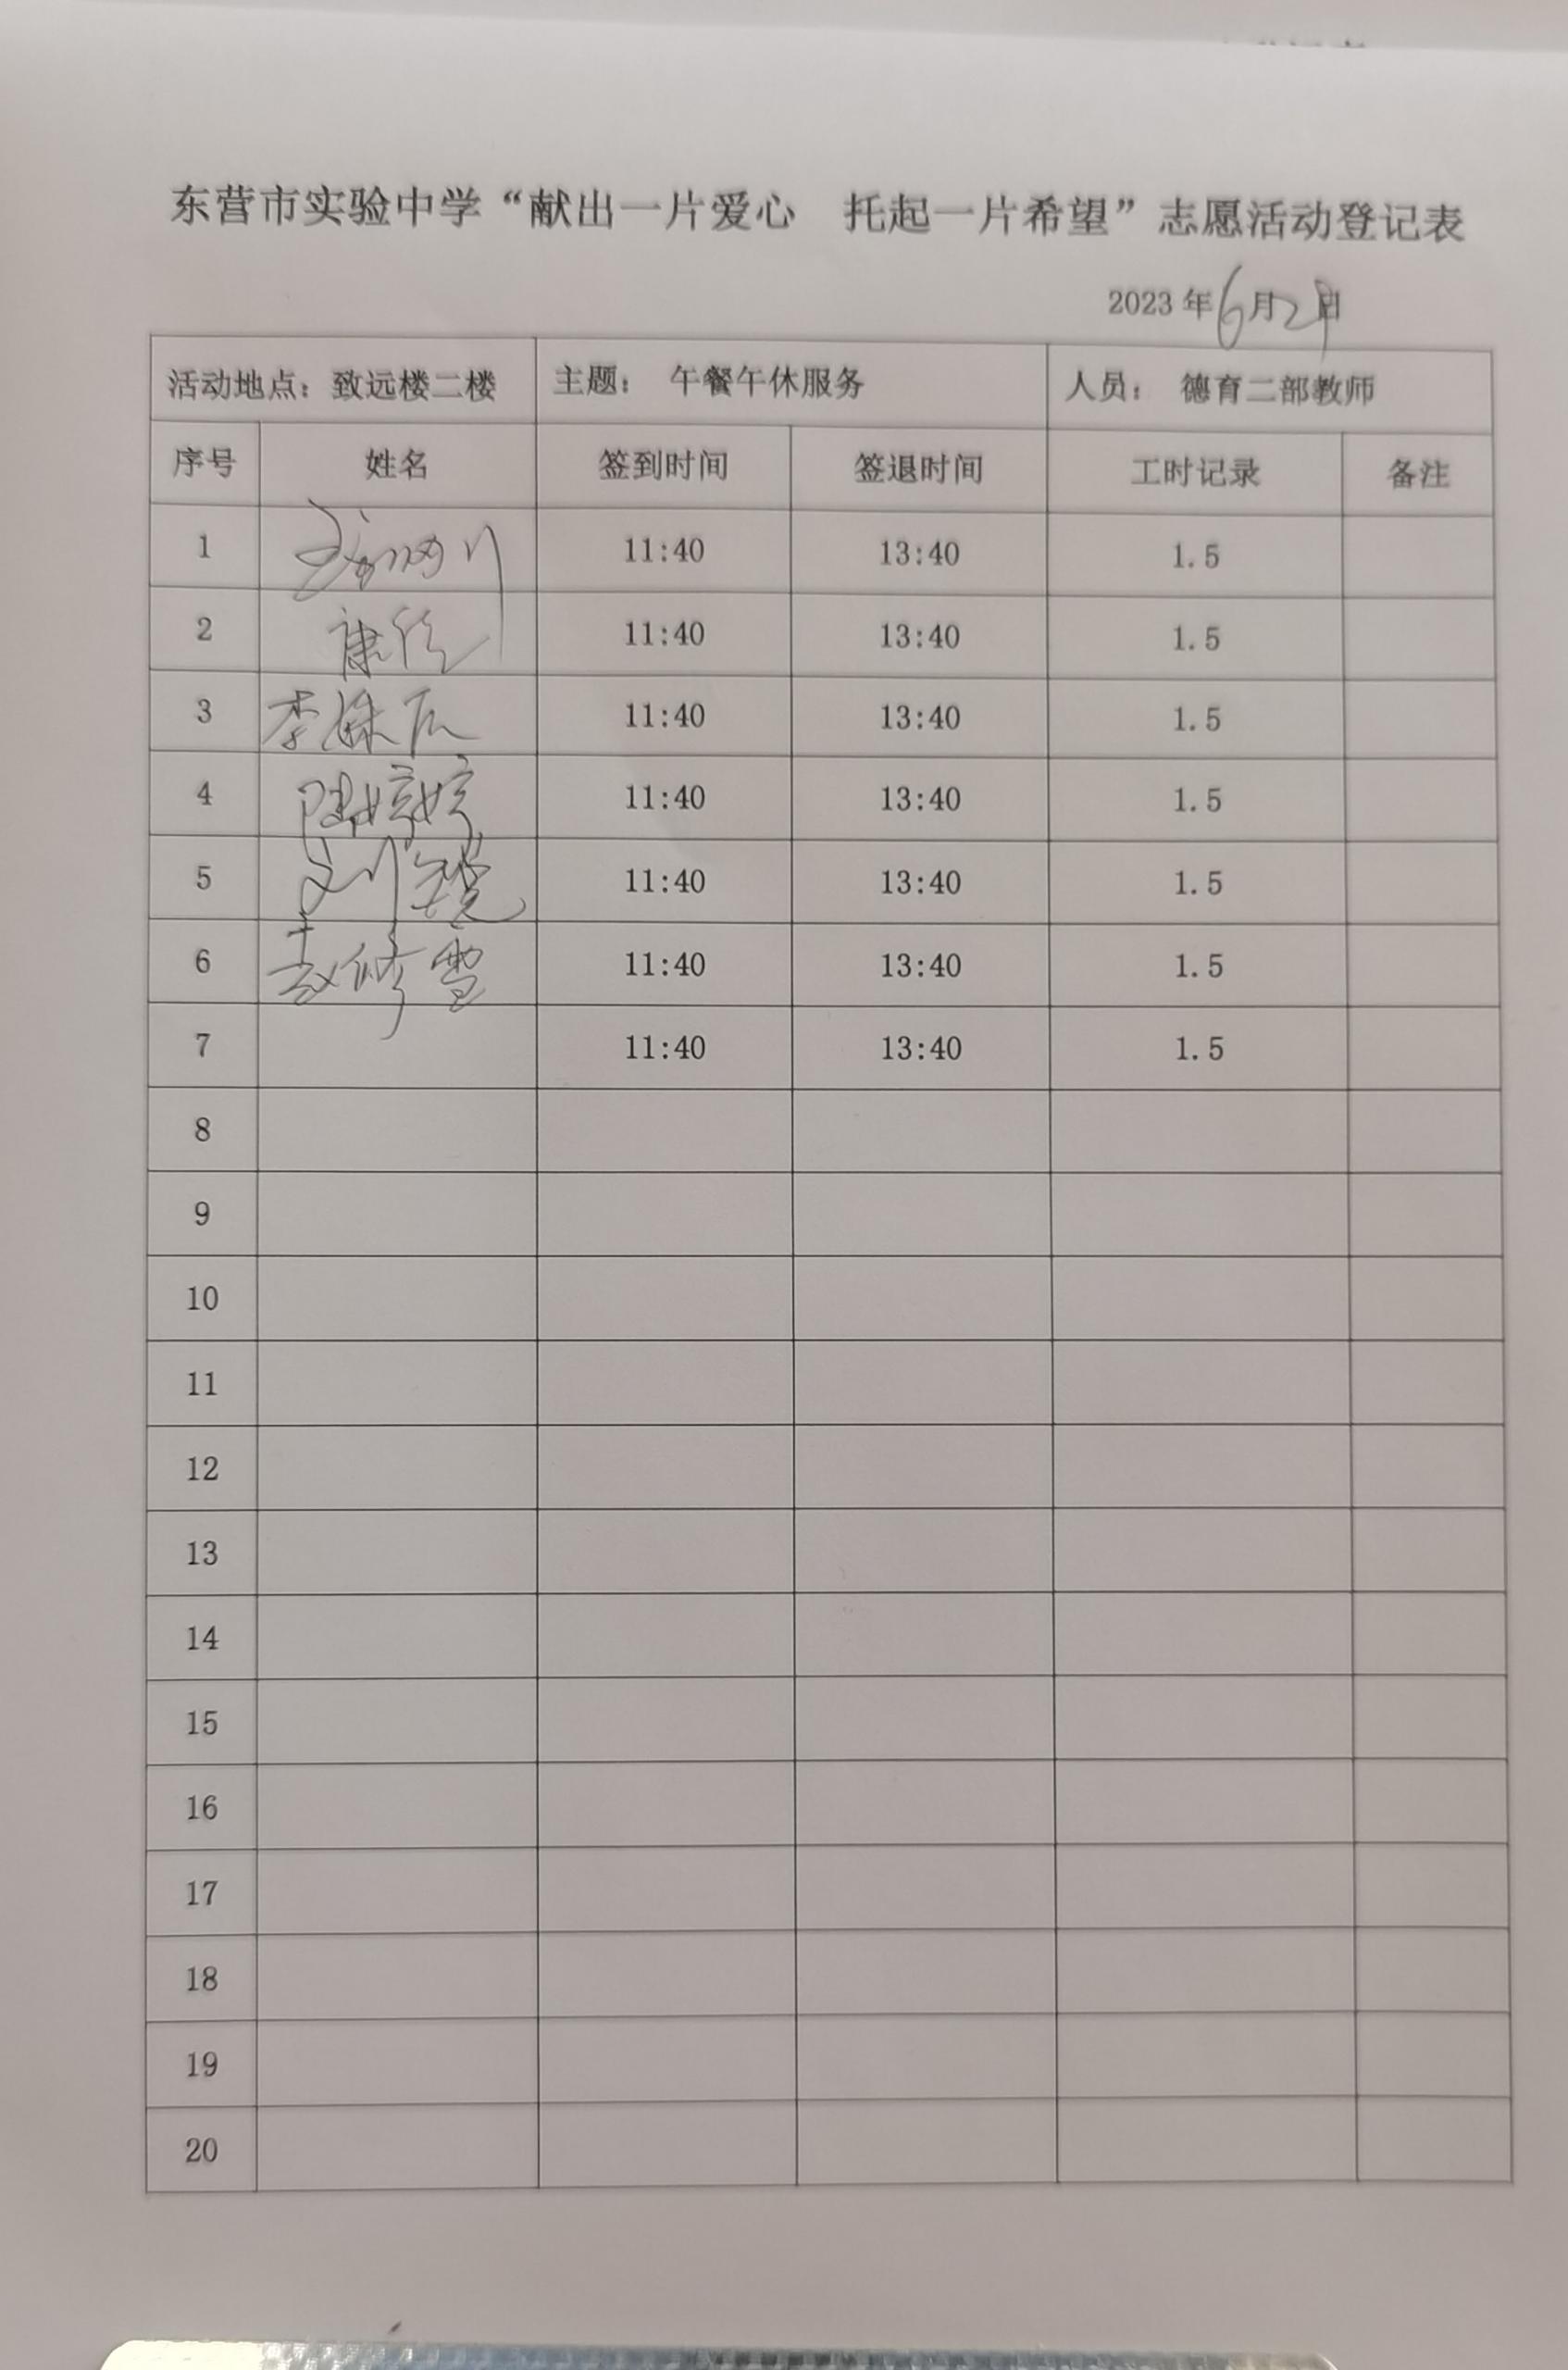 东营市实验中学“献出一片爱心 托起一片希望”志愿活动登记表
2023年6月29日
活动地点：致远楼二楼 主题： 午餐午休服务 人员： 德育二部教师
序号 姓名 签到时间 签退时间 工时记录 备注
1 11:40 13:40 1.5
2 康 11:40 13:40 1.5
3 李姝 11:40 13:40 1.5
4 陆婷婷 11:40 13:40 1.5
5 刘锐 11:40 13:40 1.5
6 赵修雪 11:40 13:40 1.5
7 11:40 13:40 1.5
8
9
10
11
12
13
14
15
16
17
18
19
20